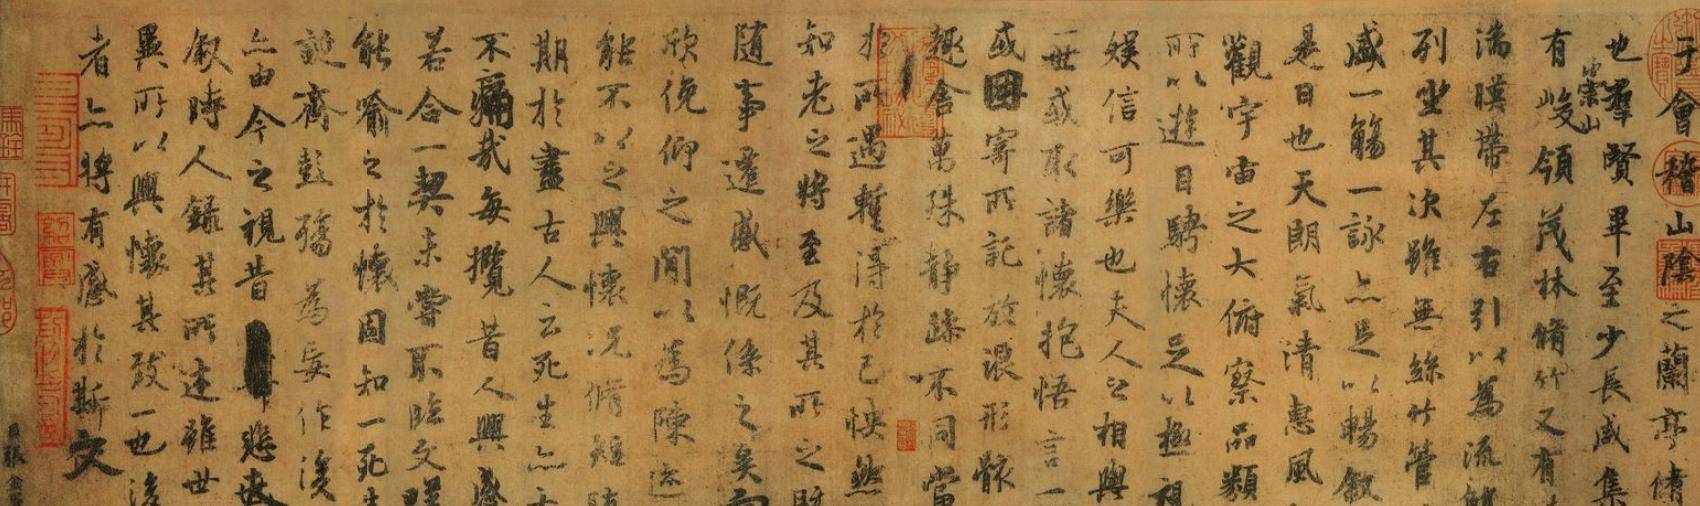 于會稽山陰之蘭亭脩
也羣賢畢至少長咸集
有崇山峻領茂林脩竹又有
湍暎帶左右引以為流
列坐其次雖無絲竹管
盛一觴一詠亦足以暢敘
是日也天朗氣清惠風
觀宇宙之大俯察品類
所以遊目騁懷足以極視
娛信可樂也夫人之相與
一世或取諸懷抱悟言一
或因寄所託放浪形骸
趣舍萬殊靜躁不同當
於所遇蹔得於己怏然
知老之將至及其所之既
隨事遷感慨係之矣向
欣俛仰之閒以為陳迹
能不以之興懷況脩短隨
期於盡古人云死生亦大
不痛哉每攬昔人興感
若合一契未嘗不臨文嗟
能喻之於懷固知一死生
誕齊彭殤為妄作後
亦由今之視昔悲夫
敘時人錄其所述雖世
異所以興懷其致一也後
者亦將有感於斯文